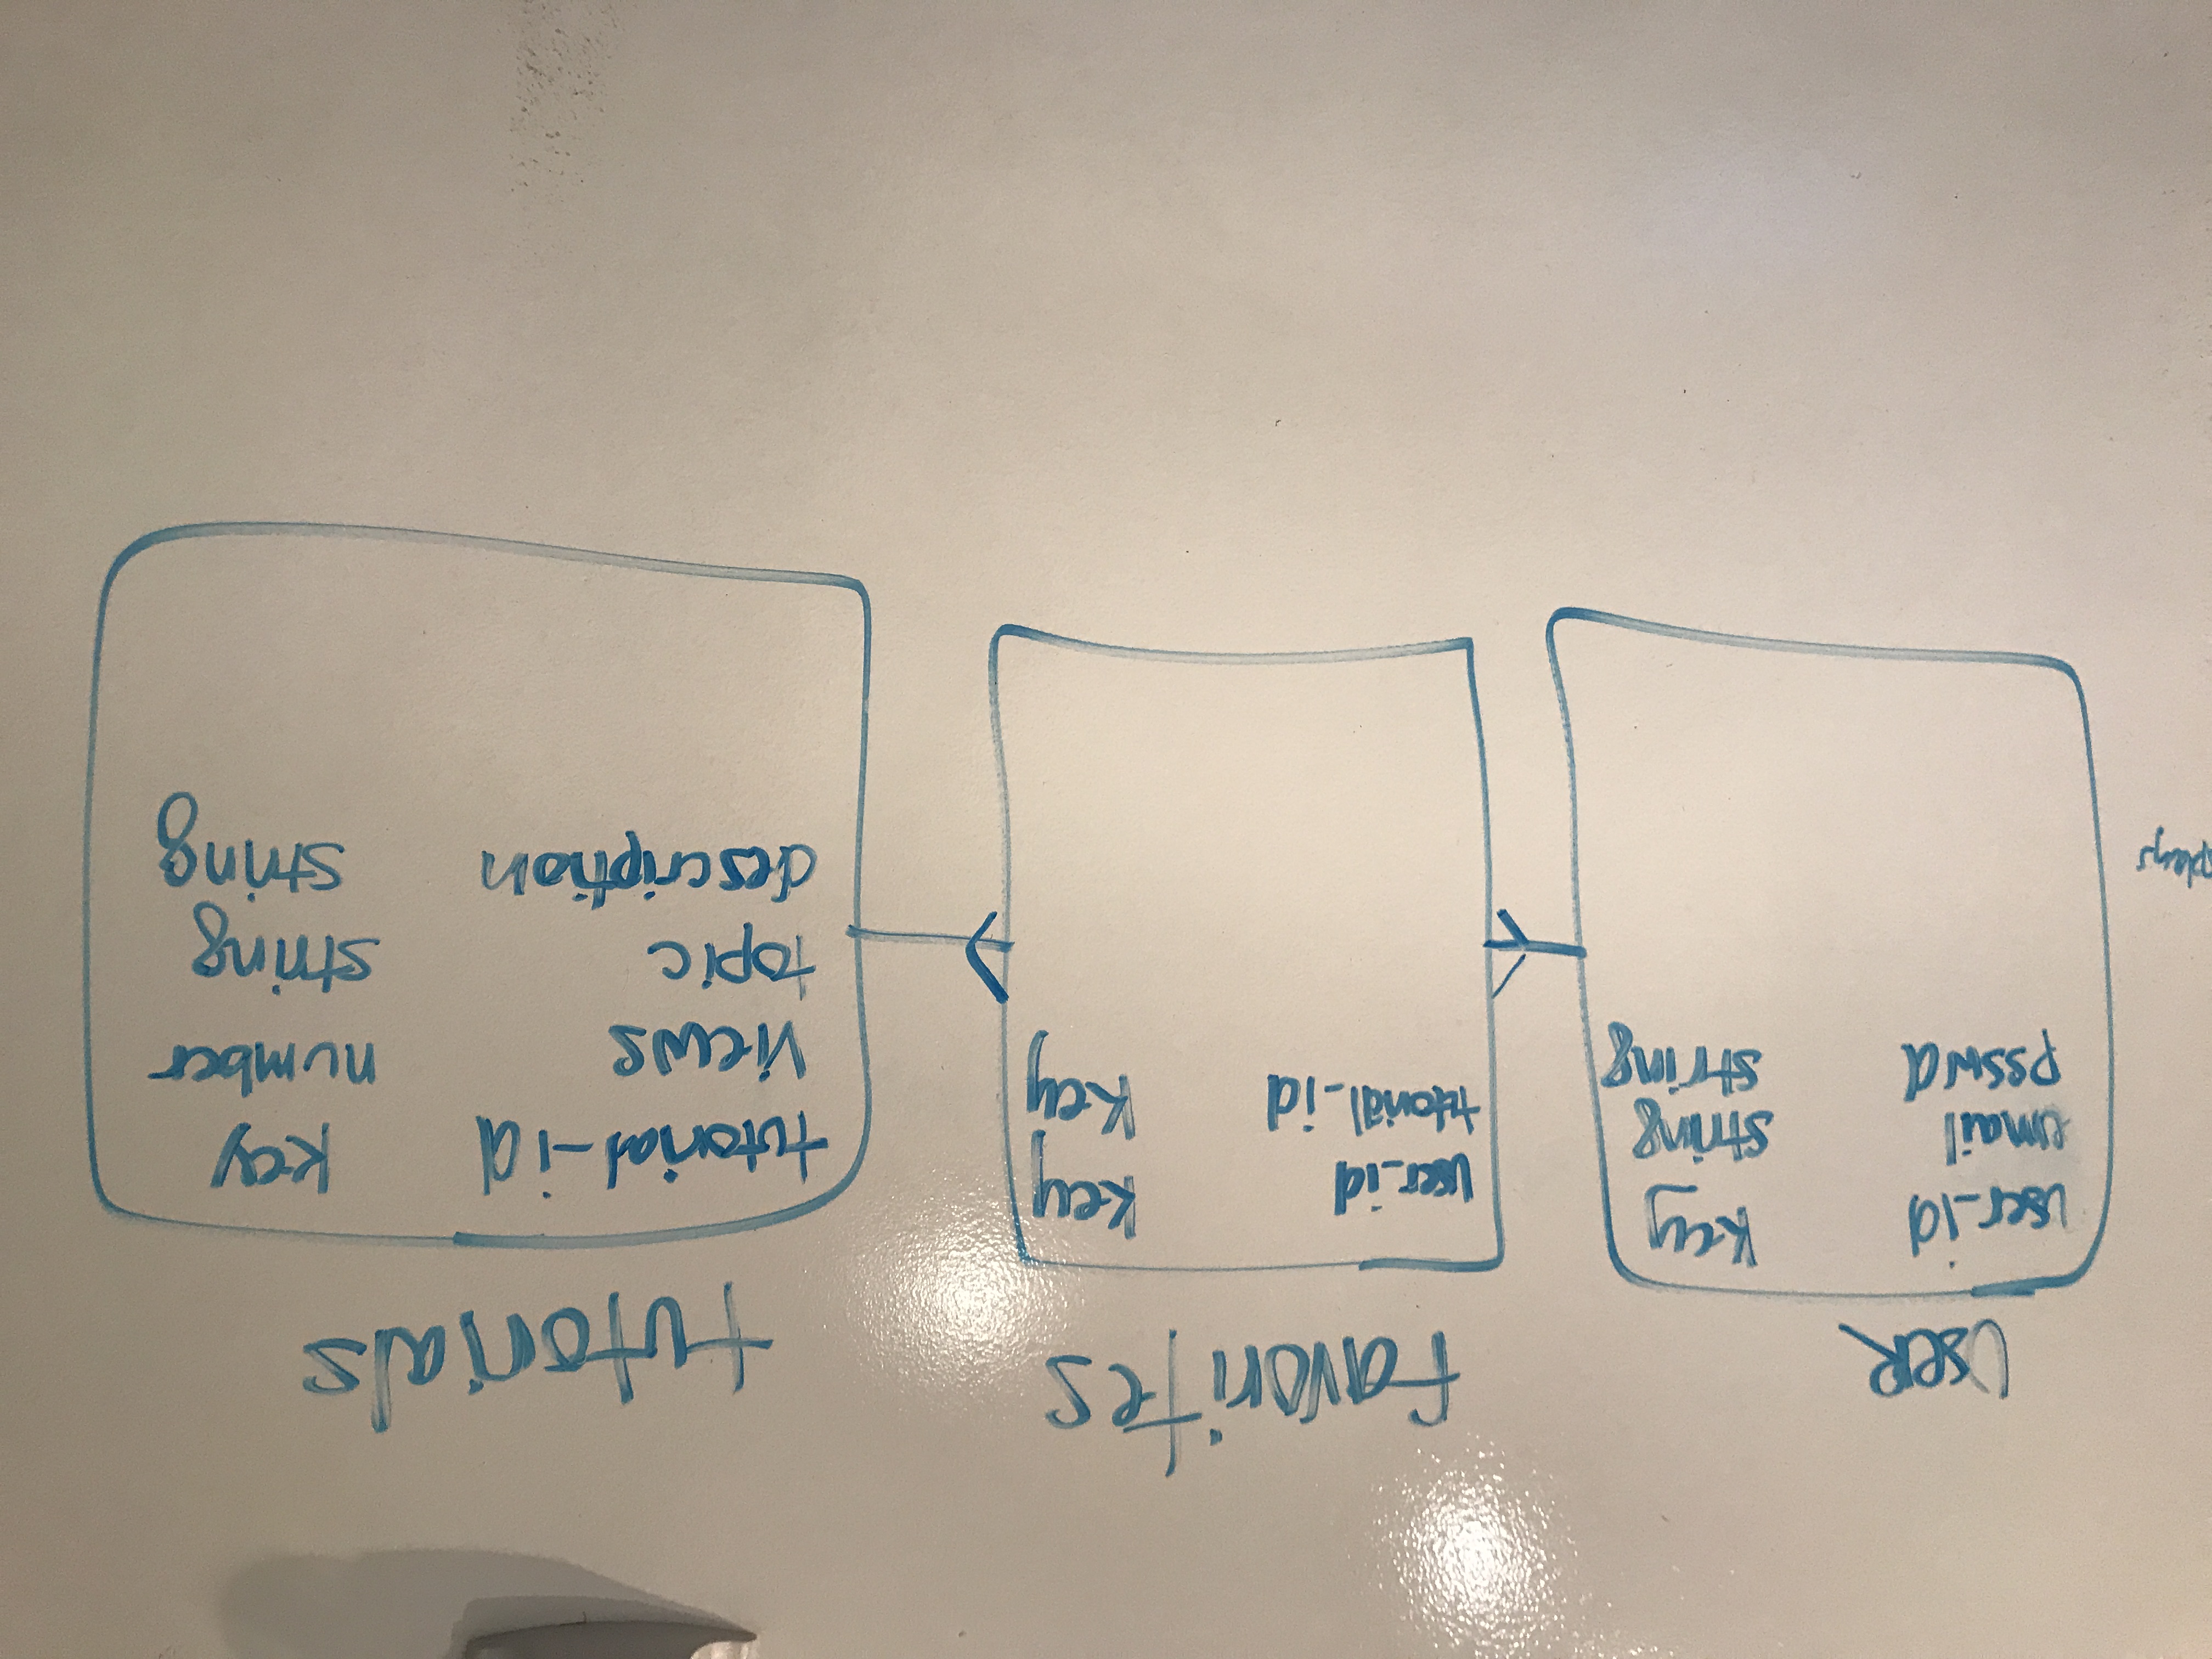 User
user_id key
email string
psswd string
favorites
user_id key
tutorial_id key
tutorials
tutorial_id key
views number
topic string
description string